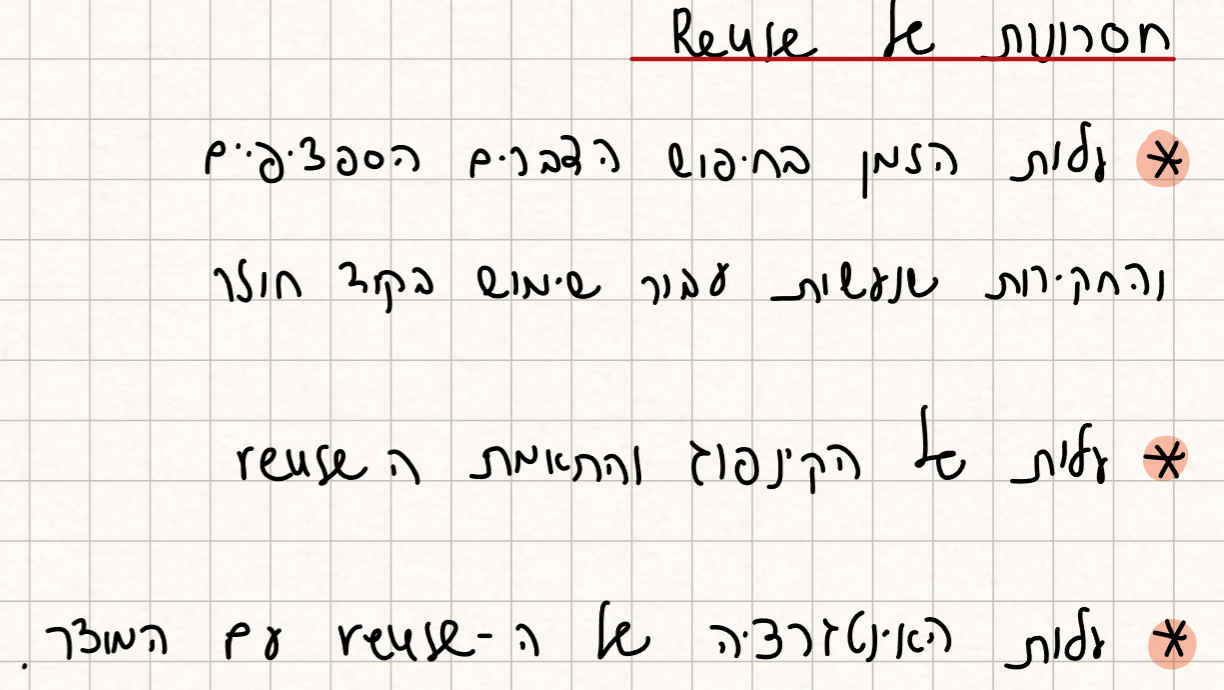 חסרונות של Reuse
* עלות הזמן בחיפוש הדברים הספציפיים
והחקירות שנעשות עבור שימוש בקוד חוזר
* עלות של הקינפוג והתאמת ה reuse
* עלות האינטגרציה של ה-reuse עם המוצר.